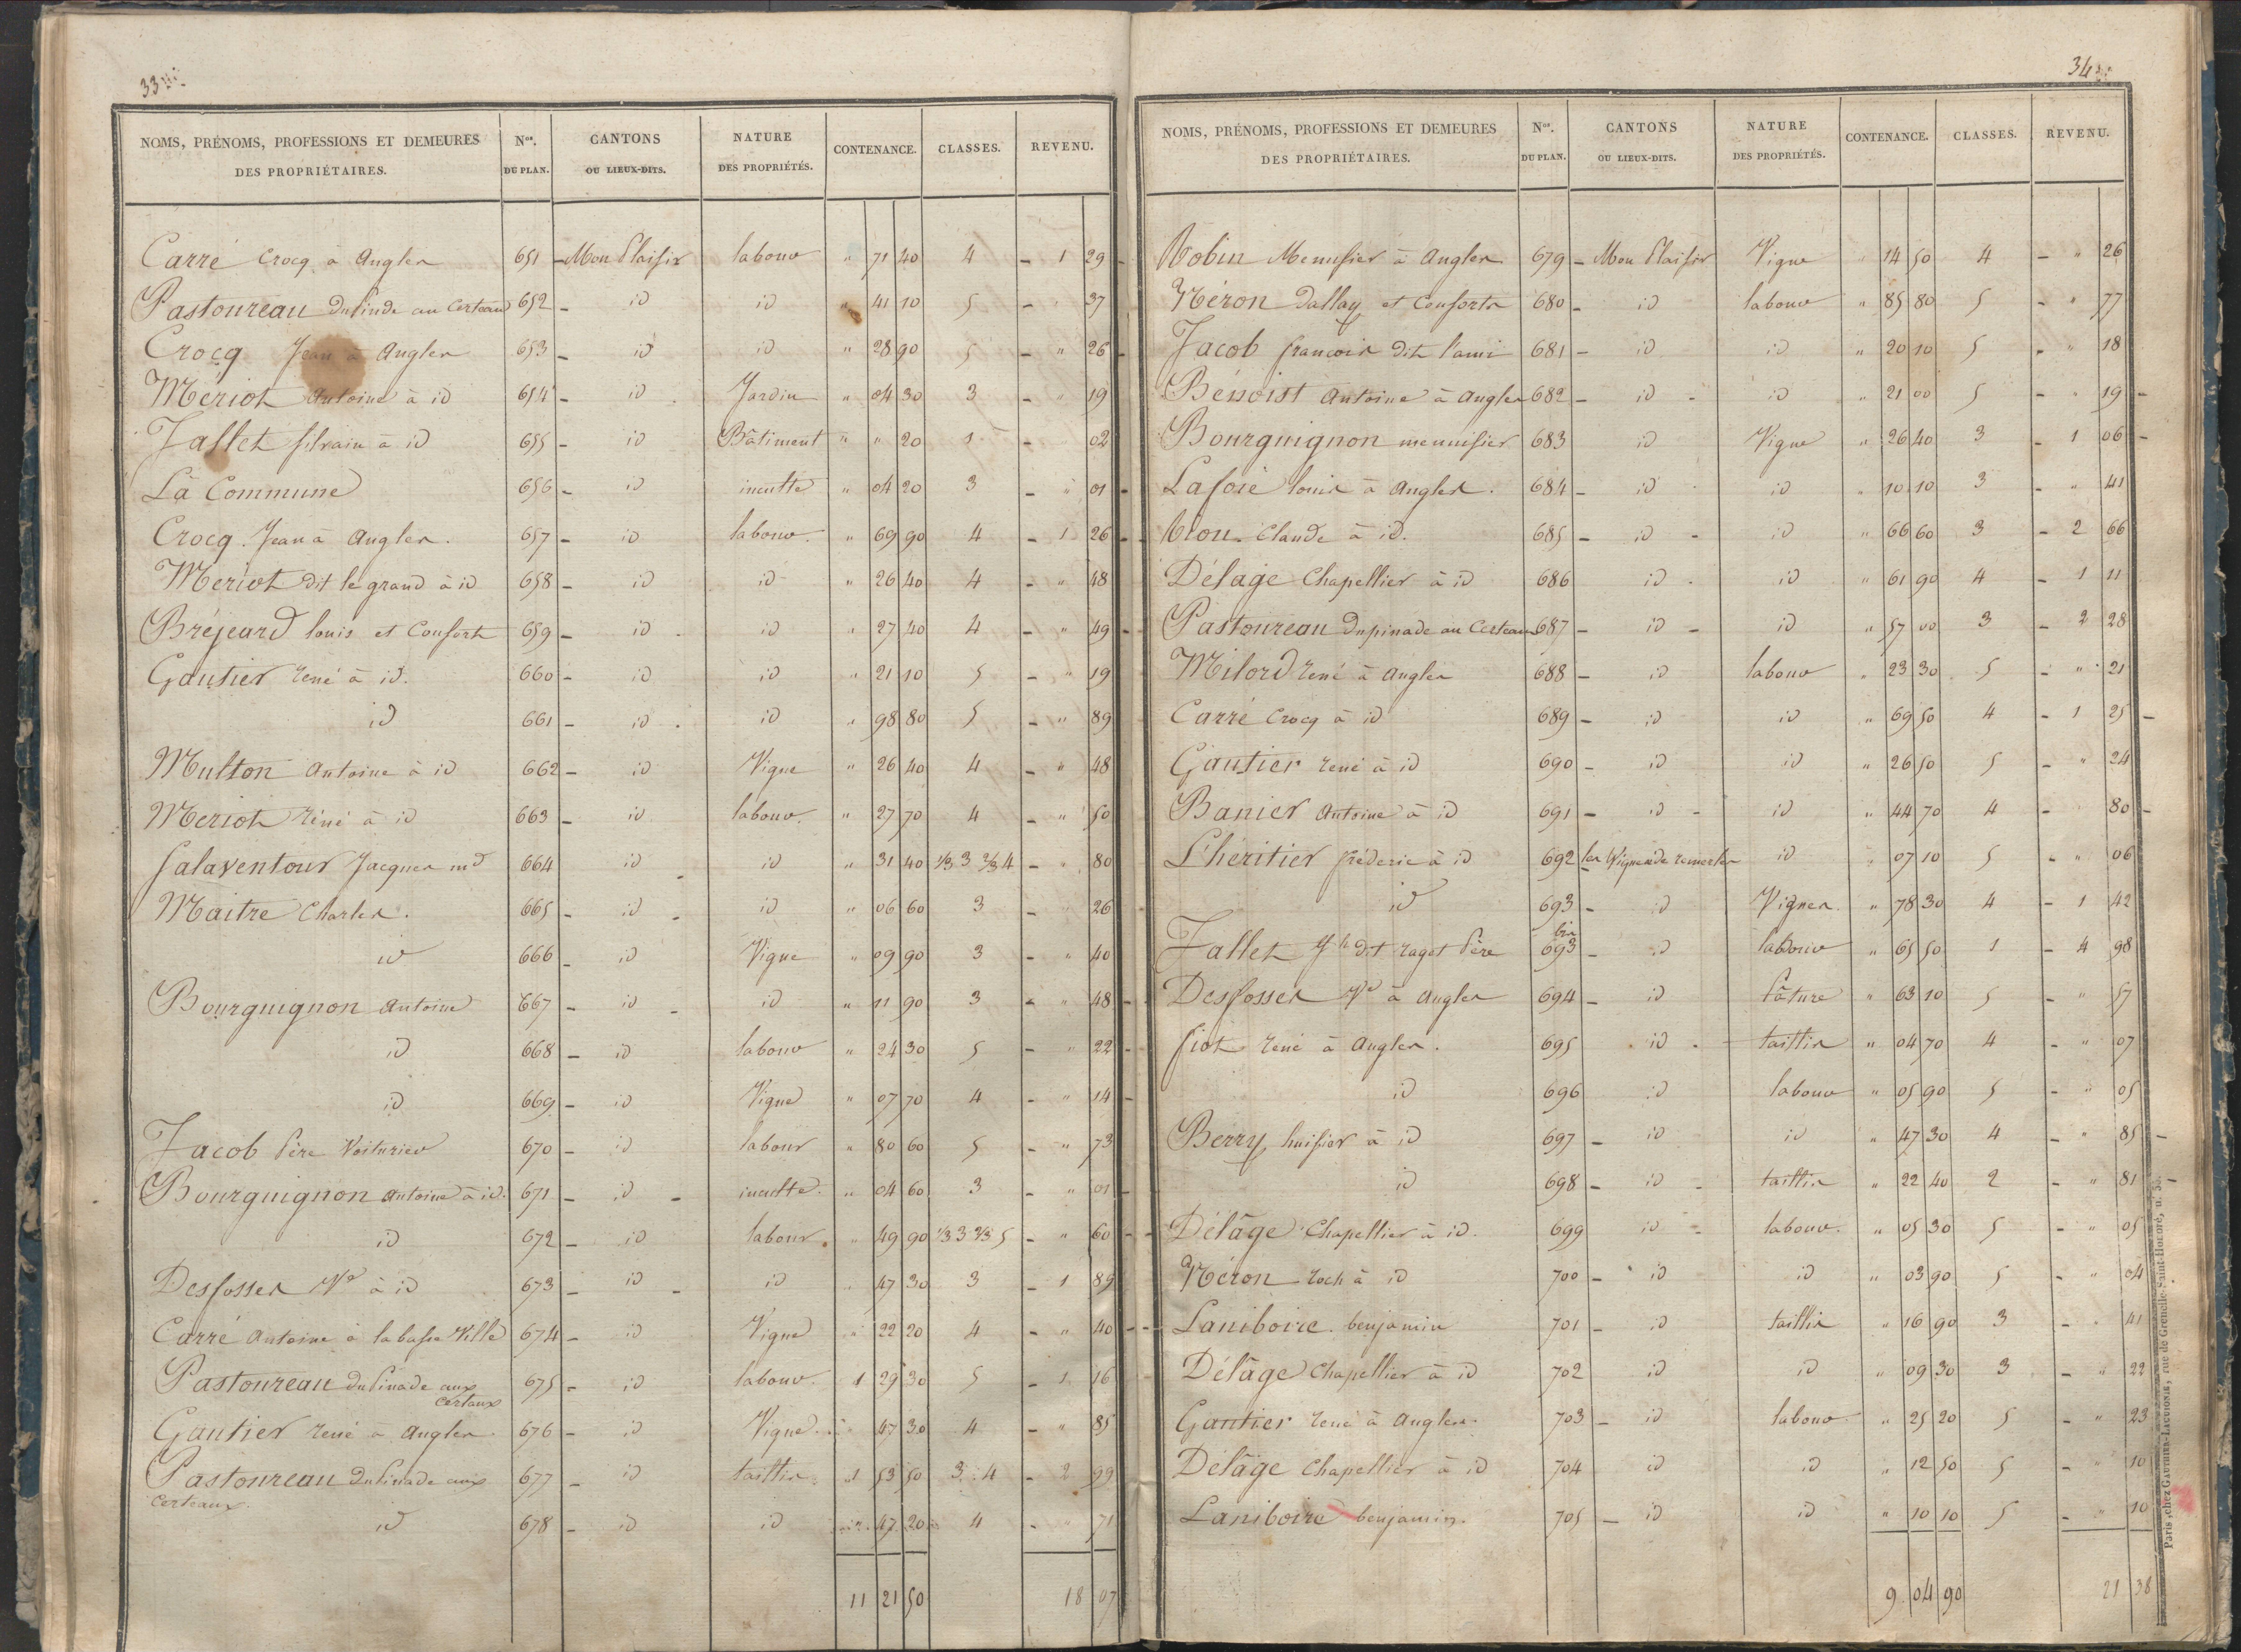 33
NOMS, PRÉNOMS, PROFESSIONS ET DEMEURES DES PROPRIÉTAIRES. Nos. DU PLAN. CANTONS OU LIEUX-DITS. NATURE DES PROPRIÉTÉS. CONTENANCE. CLASSES. REVENU.
Carré Crocq à Angles 651 - Mon Plaisir labour " 71 40 4 - 1 29 -
Pastoureau au Certeau 652 - id id " 41 10 5 - " 37
Crocq Jean à Angles 653 - id id " 28 90 5 - " 26 -
Meriot Antoine à id 654 - id Jardin " 04 30 3 - " 19
Jallet silvain à id 655 - id Bâtiment " " 20 1 - 02
La Commune 656 - id inculte " 04 20 3 - " 01 -
Crocq Jean à Angles. 657 - id labour. " 69 90 4 - 1 26 -
Meriot dit le grand à id 658 - id id " 26 40 4 - " 48
Bréjeard louis et Consorts 659 - id id " 27 40 4 - " 49 -
Gautier réné à id. 660 - id id " 21 10 5 - " 19
id 661 - id id " 98 80 5 - " 89
Multon Antoine à id 662 - id Vigne " 26 40 4 - " 48
Meriot réné à id 663 - id labour. " 27 70 4 - " 50
Salaventour Jacques md 664 id id " 31 40 1/3 3 2/3 4 - " 80
Maitre Charles. 665 - id id " 06 60 3 - " 26
id 666 - id Vigne " 09 90 3 - " 40
Bourguignon Antoine 667 - id id " 11 90 3 - " 48 -
id 668 - id labour " 24 30 5 - " 22 -
id 669 - id Vigne " 07 70 4 - " 14 -
Jacob Père Voiturier 670 - id labour " 80 60 5 - " 73
Bourguignon Antoine à id. 671 - id inculte. " 04 60 3 - " 01 -
id 672 - id labour. " 49 90 1/3 3 2/3 5 - " 60 -
Desfosses Ve à id 673 - id id " 47 30 3 - 1 89
Carré Antoine à la basse Ville 674 - id Vigne " 22 20 4 - " 40 -
Pastoureau duPinade aux certaux 675 - id labour. 1 29 30 5 - 1 16
Gautier réné à Angles 676 - id Vigne. " 47 30 4 - " 85
Pastoureau duPinade aux certeaux. 677 - id taillis 1 53 50 3 : 4 - 2 99
id 678 - id id 47 20 4 - " 71
11 21 50 18 07
34
NOMS, PRÉNOMS, PROFESSIONS ET DEMEURES DES PROPRIÉTAIRES. Nos. DU PLAN. CANTONS OU LIEUX-DITS. NATURE DES PROPRIÉTÉS. CONTENANCE. CLASSES. REVENU.
Robin Menuisier à Angles 679 - Mon Plaisir Vigne " 14 50 4 - " 26
Néron Dallay et Consorts 680 - id labour " 85 80 5 - " 77
Jacob francois dit l'ami 681 - id id " 20 10 5 - " 18
Bénoist Antoine à Angles 682 - id - id " 21 00 5 - " 19 -
Bourguignon menuisier 683 id Vigne " 26 40 3 - 1 06 -
Lafoie louis à Angles. 684 - id id " 10 10 3 - " 41
Claude à id. 685 - id - id " 66 60 3 - 2 66
Délage Chapellier à id 686 id id " 61 90 4 - 1 11
Pastoureau Dupinade au Certeaux 687 - id - id " 57 00 3 - 2 28
Milord réné à Angles 688 - id labour " 23 30 5 - " 21
Carré Crocq à id 689 - id id " 69 50 4 - 1 25 -
Gautier réné à id 690 - id id " 26 50 5 - " 24
Banier Antoine à id 691 - id - id " 44 70 4 - 80 -
L'héritier fréderic à id 692 les Vignes de id " 07 10 5 - " 06
id 693 - id Vignes. " 78 30 4 - 1 42
Jallet Jh dit ragot Père 693 bis - id labour " 65 50 1 - 4 98
Desfosses Ve à Angles 694 - id Pâture " 63 10 5 - " 57
fiot réné à Angles. 695 id - taillis " 04 70 4 - " 07
id 696 id labour " 05 90 5 - " 05
Berry huissier à id 697 - id id " 47 30 4 - " 85 -
id 698 - id - taillis " 22 40 2 - " 81 -
Délâge Chapellier à id. 699 id - labour. " 05 30 5 - " 05
Néron roch à id 700 - id id " 03 90 5 - " 04
Laniboire benjamin 701 - id taillis " 16 90 3 - " 41
Délâge Chapellier à id 702 id id " 09 30 3 - " 22
Gautier réné à Angles. 703 - id labour " 25 20 5 - " 23
Délâge Chapellier à id 704 id id " 12 50 5 - " 10
Laniboire benjamin. 705 - id id " 10 10 5 - " 10
9 04 90 21 38
Paris, chez GAUTHIER-LAGUIONIE, rue de Grenelle-Saint-Honoré, n. 55.